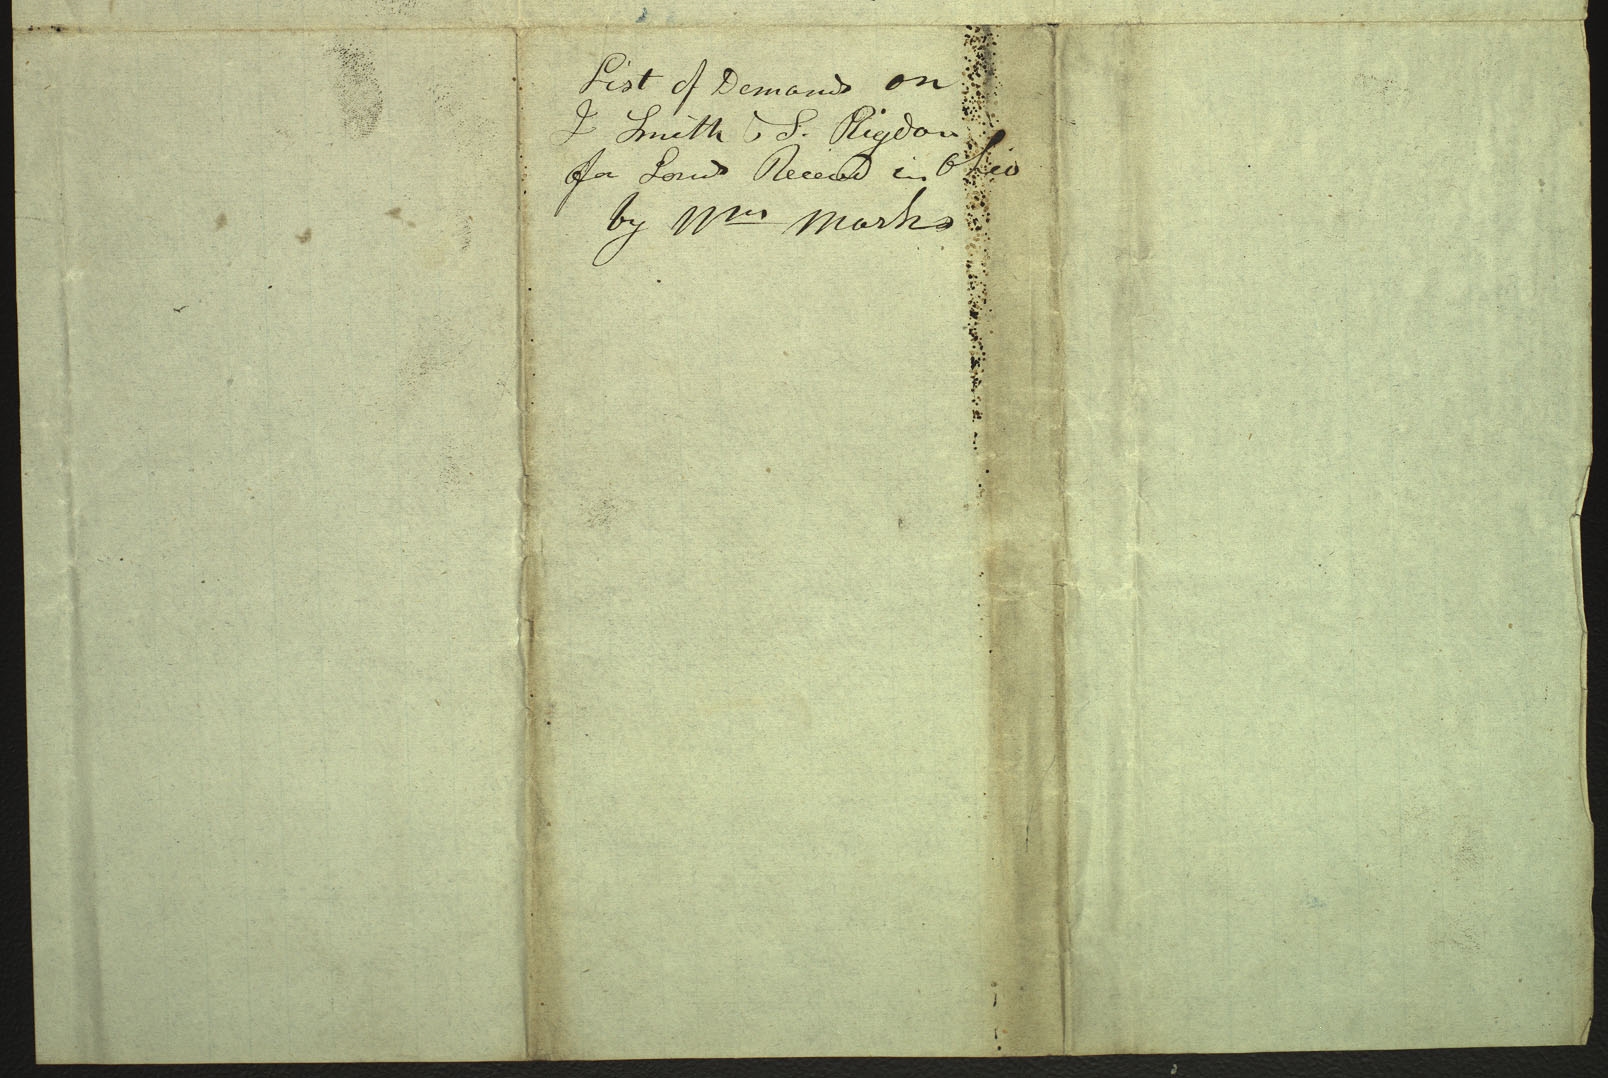 List of Demands on
J Smith & S. Rigdon
for Lands Receivd in Ohio
by Wm Marks